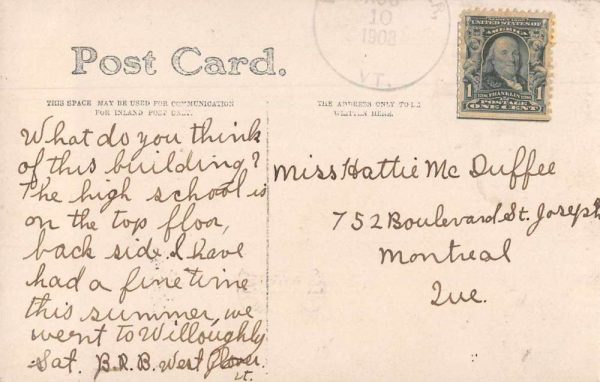 Post Card.
10
1908
VT.
1 POSTAGE 1
ONE CENT
THIS SPACE MAY BE USED FOR COMMUNICATION
FOR INLAND POST ONLY.
THE ADDRESS ONLY TO BE
WRITTEN HERE.
What do you think
of this building?
The high school is
on the top floor,
back side. I have
had a fine time
this summer, we
went to Willoughby
Sat. B.R.B. West Glover.
Vt.
Miss Hattie Mc Duffee
752 Boulevard St. Joseph
Montreal
Que.